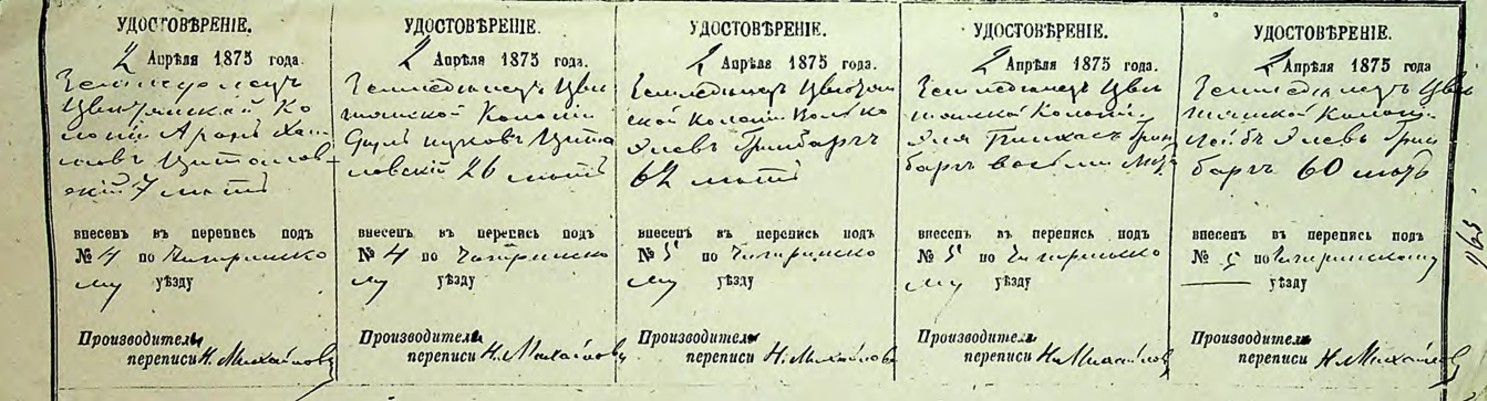 УДОСТОВѢРЕНІЕ.
2 Апрѣля 1875 года.
Земледѣлецъ
Цвитанской Ко
лоніи Аронъ Хаи
мовъ Цитолов-
скій 7 летъ
внесенъ въ перепись подъ
№ 4 по Чигиринско
му уѣзду
Производитель
переписи Н. Михайловъ
УДОСТОВѢРЕНІЕ.
2 Апрѣля 1875 года.
Земледелецъ Цви
танской Колоніи
Цита
ловскій 26 летъ
внесенъ въ перепись подъ
№ 4 по Чигиринско
му уѣзду
Производитель
переписи Н. Михайловъ
УДОСТОВѢРЕНІЕ.
2 Апрѣля 1875 года.
Земледелецъ Цвитан
ской Колоніи
Элевъ Гринбаргъ
62 летъ
внесенъ въ перепись подъ
№ 5 по Чигиринско
му уѣзду
Производитель
переписи Н. Михайловъ
УДОСТОВѢРЕНІЕ.
2 Апрѣля 1875 года.
Земледелецъ Цви
танской Колоніи
Эля Пинхасъ Грин
баргъ восьми летъ
внесенъ въ перепись подъ
№ 5 по Чигиринско
му уѣзду
Производитель
переписи Н. Михайловъ
УДОСТОВѢРЕНІЕ.
2 Апрѣля 1875 года
Земледелецъ Цви
танской Колоніи
Лейбъ Элевъ Грин
баргъ 60 летъ
внесенъ въ перепись подъ
№ 5 по Чигиринскому
уѣзду
Производитель
переписи Н. Михайловъ
165